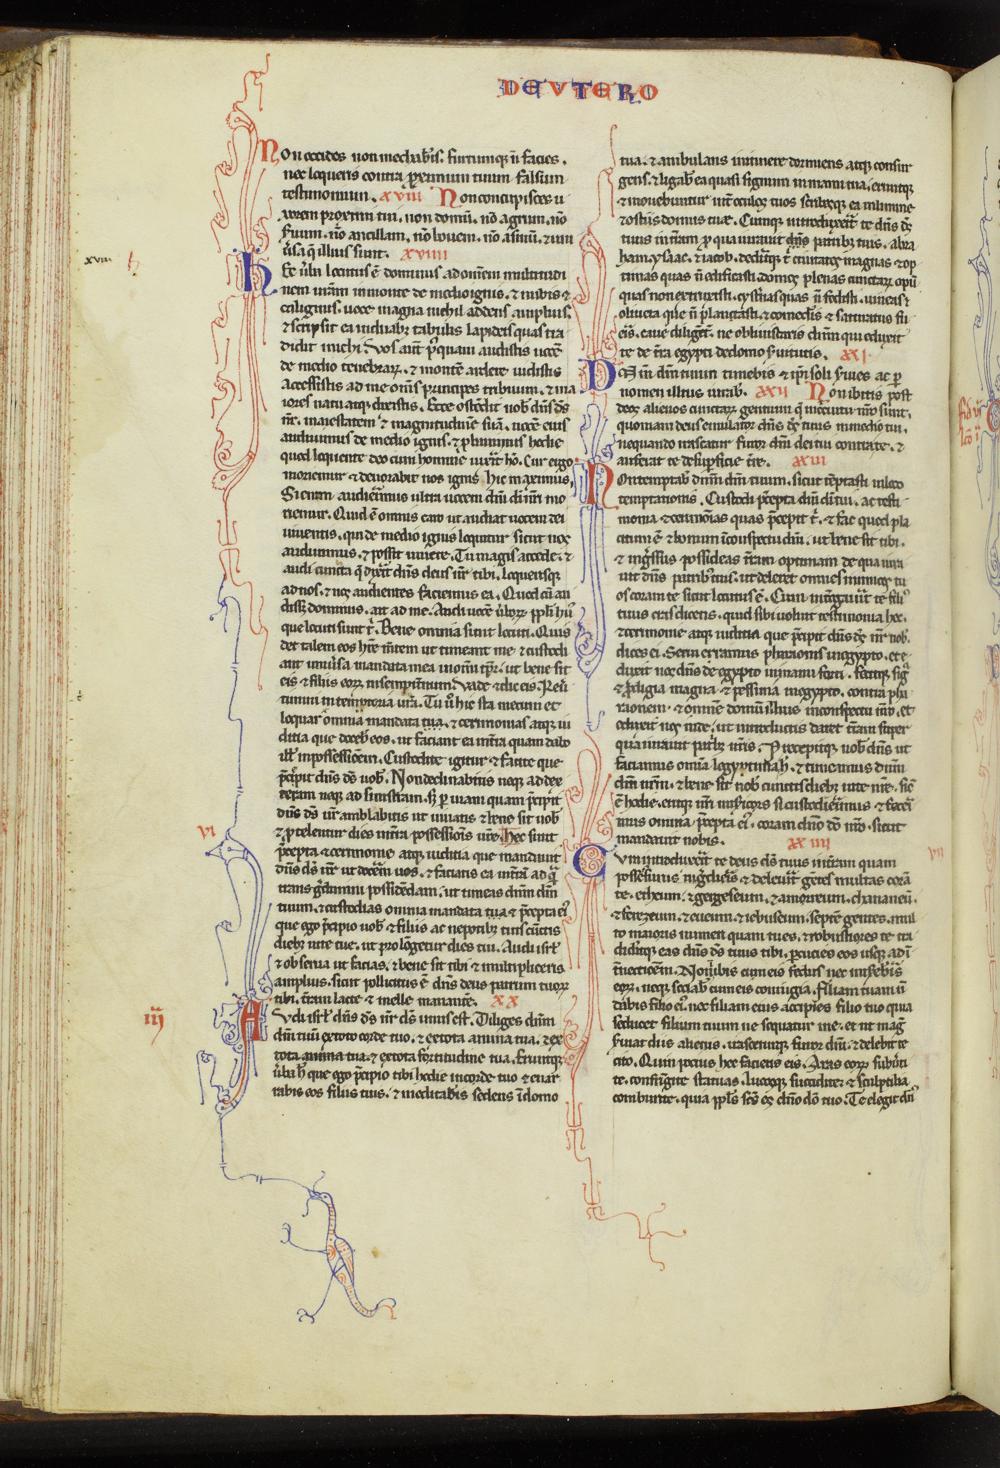 DEUTERO
Non occides non mechab'is. furtumq; n̄ facies.
nec loqueris contra proximum tuum falsum
testimonium. xviii Non concupisces u
xorem proximi tui. non domū. nō agrum. nō
seruum. nō ancillam. nō bouem. nō asinū. & uni
u'sa q̄ illius sunt. xviiii
xviii
Hec u'ba locutus ē dominus ad omnem multitudi
nem ur̄am in monte de medio ignis. & nubis &
caliginis. uoce magna nichil addens amplius.
& scripsit ea in duab; tabulis lapideis quas tra
didit michi. Vos aut̄ p'quam audistis uocē
de medio tenebrarꝝ. & montē ardere uidistis
accessistis ad me om̄s principes tribuum. & ma
iores natu atq; dixistis. Ecce ostēdit nob' dn̄s d's
nr̄. maiestatem & magnitudinē suā. uocē eius
audiuimus de medio ignis. & p'bauimus hodie
quod loquente deo cum homine uixit hō. Cur ergo
moriemur & deuorabit nos ignis hic maximus.
Si enim audierimus ultra uocem dn̄i di n̄ri mo
riemur. Quid ē omnis caro ut audiat uocem dei
uiuentis. qui de medio ignis loquitur sicut nos
audiuimus. & possit uiuere. Tu magis accede. &
audi cuncta q̄ dixit dn̄s deus nr̄ tibi. loquerisq;
ad nos. & nos audientes faciemus ea. Quod cū au
disset dominus. ait ad me. Audi uocē u'borꝝ pp̄li hui'
que locuti sunt t'. Bene omnia sunt locuti. Quis
det talem eos h're m̄tem ut timeant me. & custodi
ant uniu'sa mandata mea in om̄i tp̄r. ut bene sit
eis & filiis eorꝝ in sempit'num. Vade & dic eis. Reu'
timini in tentoria ur̄a. Tu u' hic sta mecum et
loquar omnia mandata tua. & cerimonias atq; iu
ditia que docebis eos. ut faciant ea in t'ra quam dabo
ill' in possessiōem. Custodite igitur & facite que
p'cepit dn̄s d's uob'. Non declinabitis neq; ad dex
teram neq; ad sinistram. s; p uiam quam p'cepit
dn̄s d's ur̄ ambulabitis ut uiuatis & bene sit uob'
& p'telentur dies in t'ra possessiōis ur̄e. Hec sunt
vi
p'cepta & cerimonie atq; iuditia que mandauit
dn̄s d's ur̄ ut docerem uos. & faciatis ea in t'ra ad q̄
transg'dimini possidendam. ut timeas dn̄m d'm
tuum. & custodias omnia mandata tua & p'cepta ei'
que ego p'cipio uob' & filiis ac nepotib; tuis cunctis
dieb; uite tue. ut prolōgetur dies tui. Audi isr̄l
& obserua ut facias. & bene sit tibi & multipliceris
amplius. sicut pollicitus ē dn̄s deus patrum tuorꝝ
tibi. t'ram lacte & melle manantē. xx
iii
Audi isr̄l dn̄s d's nr̄ d's unus est. Diliges dn̄m
d'm tuū ex toto corde tuo. & ex tota anima tua. & ex
tota anima tua. & ex tota fortitudine tua. Eruntq;
u'ba h' que ego p'cipio tibi hodie in corde tuo & enar
rabis eos filiis tuis. & meditab'is sedens ī domo
tua. & ambulans in itinere dormiens atq; consur
gens. & ligab' ea quasi signum in manu tua. eruntq;
& mouebuntur int' oculos tuos scribesq; ea in limine
& ostiis domus tue. Cumq; introduxerit te dn̄s d's
tuus in t'ram p qua iurauit dn̄s patrib; tuis. abra
ham. ysaac. & iacob. dederitq; t' ciuitates magnas & op
timas quas n̄ edificasti. domos plenas cunctarꝝ opū
quas non extruxisti. cysternas quas n̄ fodisti. uineas &
oliueta que n̄ plantasti. & comederis & saturatus fu
eris. caue diligent'. ne obliuiscaris dn̄m qui eduxit
te de t'ra egypti de domo s'uitutis. xxi
Dn̄m d'm tuum timebis & ip̄i soli s'uies ac p
nomen illius iurab'. xxii Non ibitis post
deos alienos cunctarꝝ gentium q̄ in circuitu uro sunt.
quoniam deus emulator dn̄s d's tuus in medio tui.
nequando irascatur furor dn̄i dei tui contra te. &
auferat te de sup'ficie t're. xxiii
Non temptab' dn̄m d'm tuum. sicut tēptasti in loco
temptationis. Custodi p'cepta dn̄i di tui. ac testi
monia & cerimōias quas p'cepit t'. & fac quod pla
citum ē & bonum ī conspectu dn̄i. ut bene sit tibi.
& ing'ssus possideas t'ram optimam de qua iura
uit dn̄s patrib' tuis. ut deleret omnes inimicos tu
os coram te sicut locutus ē. Cum int'rogauerit te fili'
tuus cras dicens. quid sibi uolunt testimonia hec.
& cerimonie atq; iuditia que p'cepit dn̄s d's nr̄ nob'.
dices ei. Serui eramus pharaonis in egypto. et e
duxit nos dn̄s de egypto in manu forti. fecitq; sig'
& p'digia magna & pessima in egypto. contra pha
raonem. & omnem domū illius in conspectu nr̄o. et
eduxit nos inde. ut introductis daret t'ram super
qua iurauit patrib; nr̄is. Precepitq; nob' dn̄s ut
faciamus omnia legyptima h'. & timeamus dn̄m
d'm nr̄m. & bene sit nob' cunctis dieb; uite nr̄e. sic'
ē hodie. eritq; nr̄i misericors si custodierimus & fecei'
mus omnia p'cepta ei'. coram dn̄o do nr̄o. sicut
mandauit nobis. xxiiii
vii
Cum introduxerit te deus d's tuus in t'ram quam
possessurus ing'dieris & deleuerit gētes multas corā
te. etheum. & gergeseum. & amorreum. chananeū.
& ferezeum. & eueum. & iebuseum. septē gentes. mul
to maioris numeri quam tu es. & robustiores te. tra
dideritq; eas dn̄s d's tuus tibi. p'cuties eos usq; ad ī
t'nectiōem. Non inibis cum eis fedus nec mis'eb'is
eorꝝ. neq; sociab' cum eis coniugia. Filiam tuam n̄
dabis filio ei'. nec filiam eius accipies filio tuo quia
seducet filium tuum ne sequatur me. et ut mag'
s'uiat diis alienis. irasceturq; furor dn̄i. & delebit te
cito. Quin potius hec facietis eis. Aras eorꝝ sub'ui
te. confringite statuas. lucosq; succidite. & sculptilia
comburite. quia pp̄ls sc̄s es dn̄o do tuo. Te elegit dn̄s